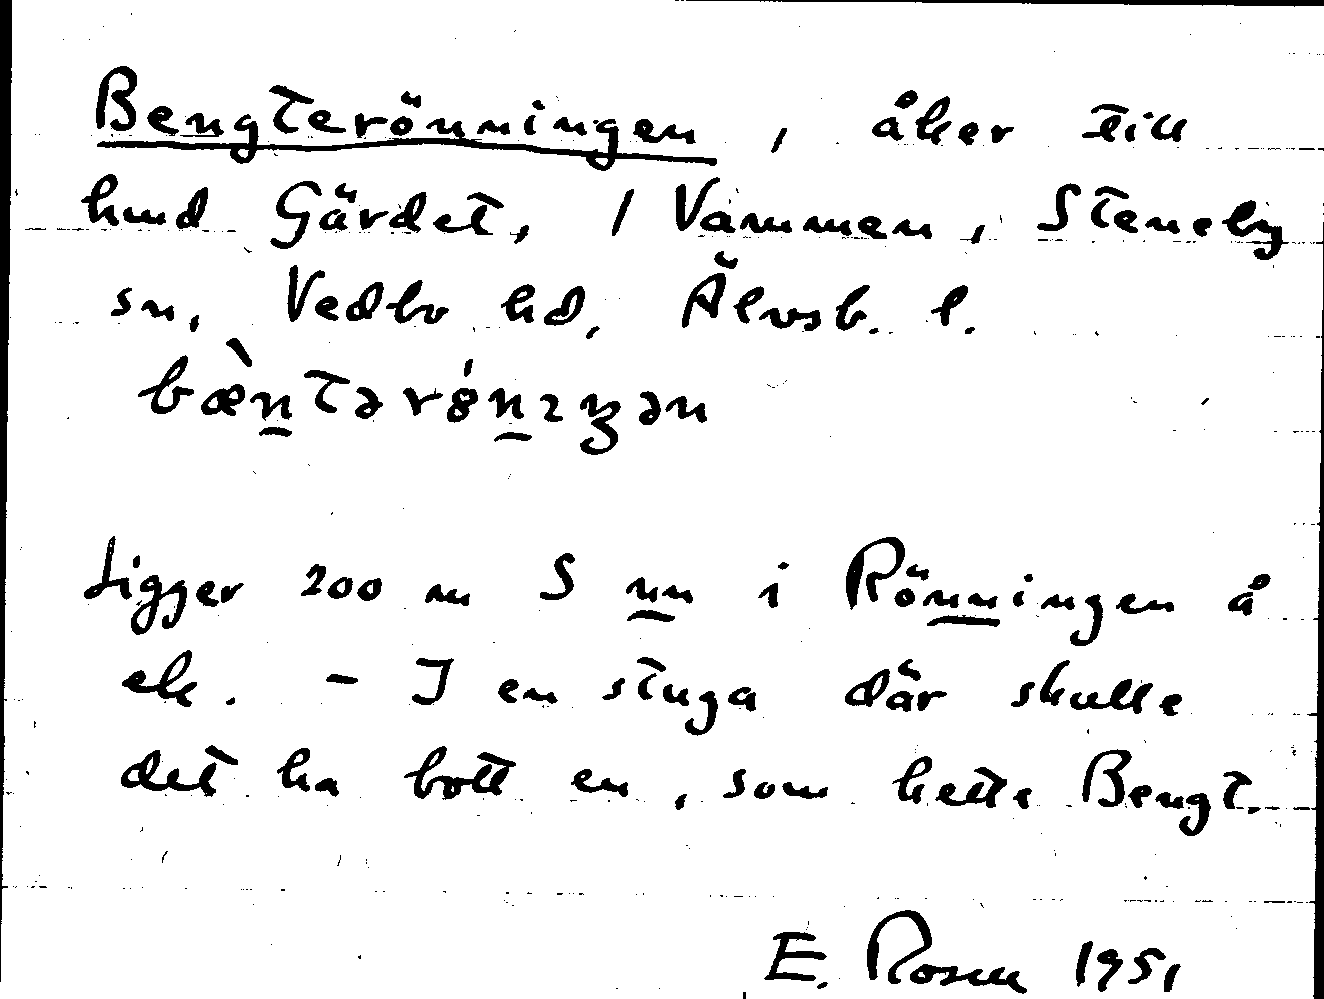 Bengterönningen, åker till
hmd Gärdet, 1 Vammen, Steneby
sn, Vedbo hd, Älvsb. l.
bæ̀n̠tərǿn̠ɪŋən
Ligger 200 m S nn i Rönningen å
ek. - I en stuga där skulle
det ha bott en, som hette Bengt.
E. Rosen 1951